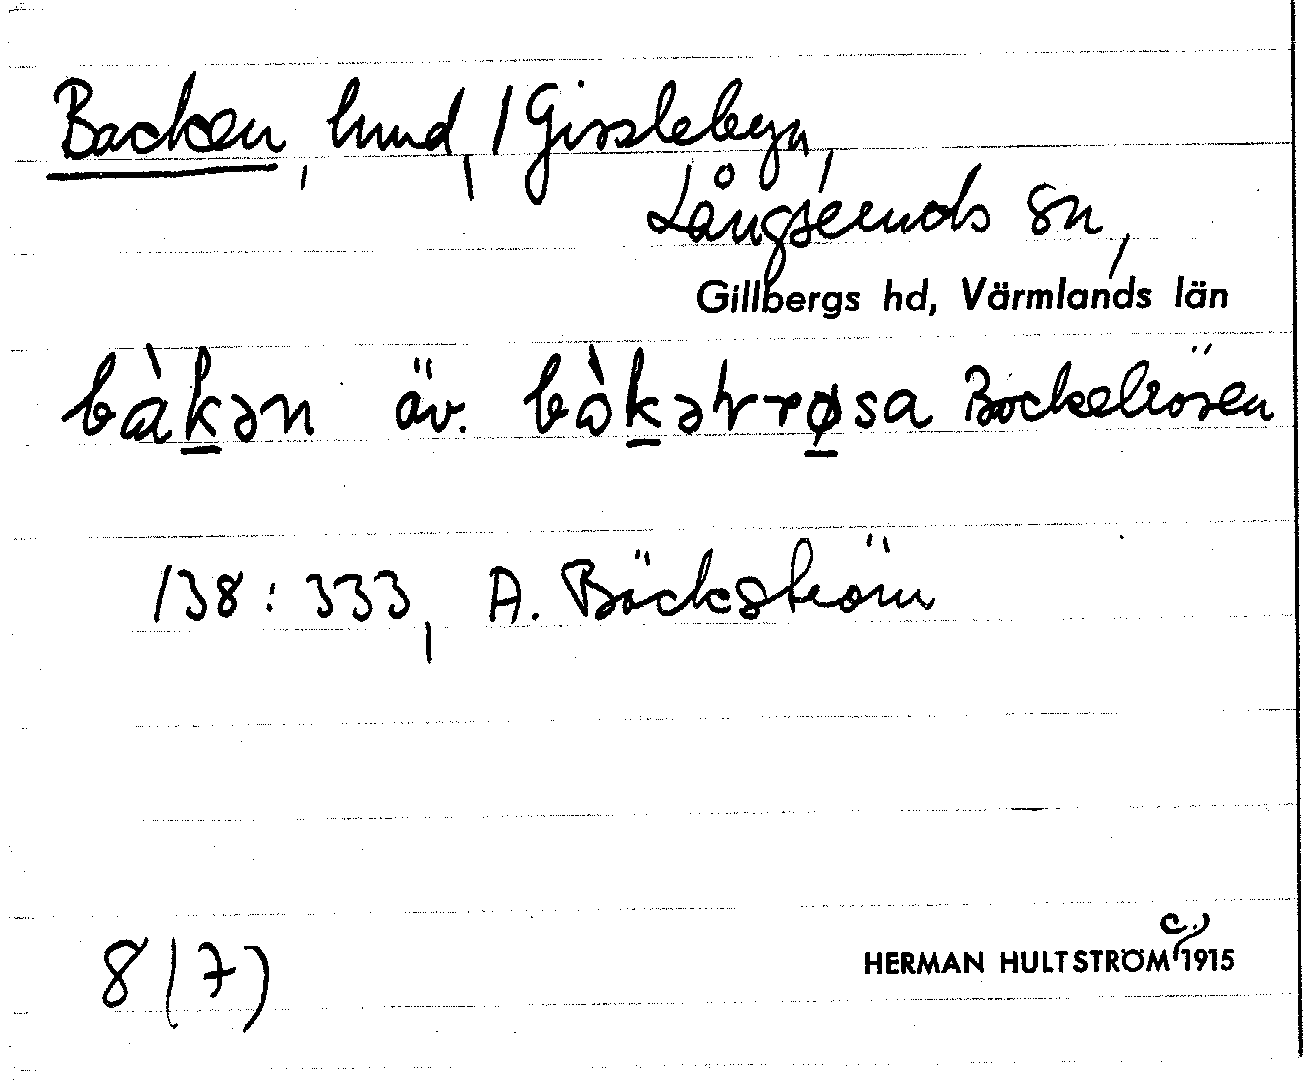 Backen, hmd, 1 Gisslebyn,
Långseruds sn,
Gillbergs hd, Värmlands län
bàkən äv. bàkətrøsa Backetrösen
138:333, A. Bäckström
8 (7)
c.)
HERMAN HULTSTRÖM 1915